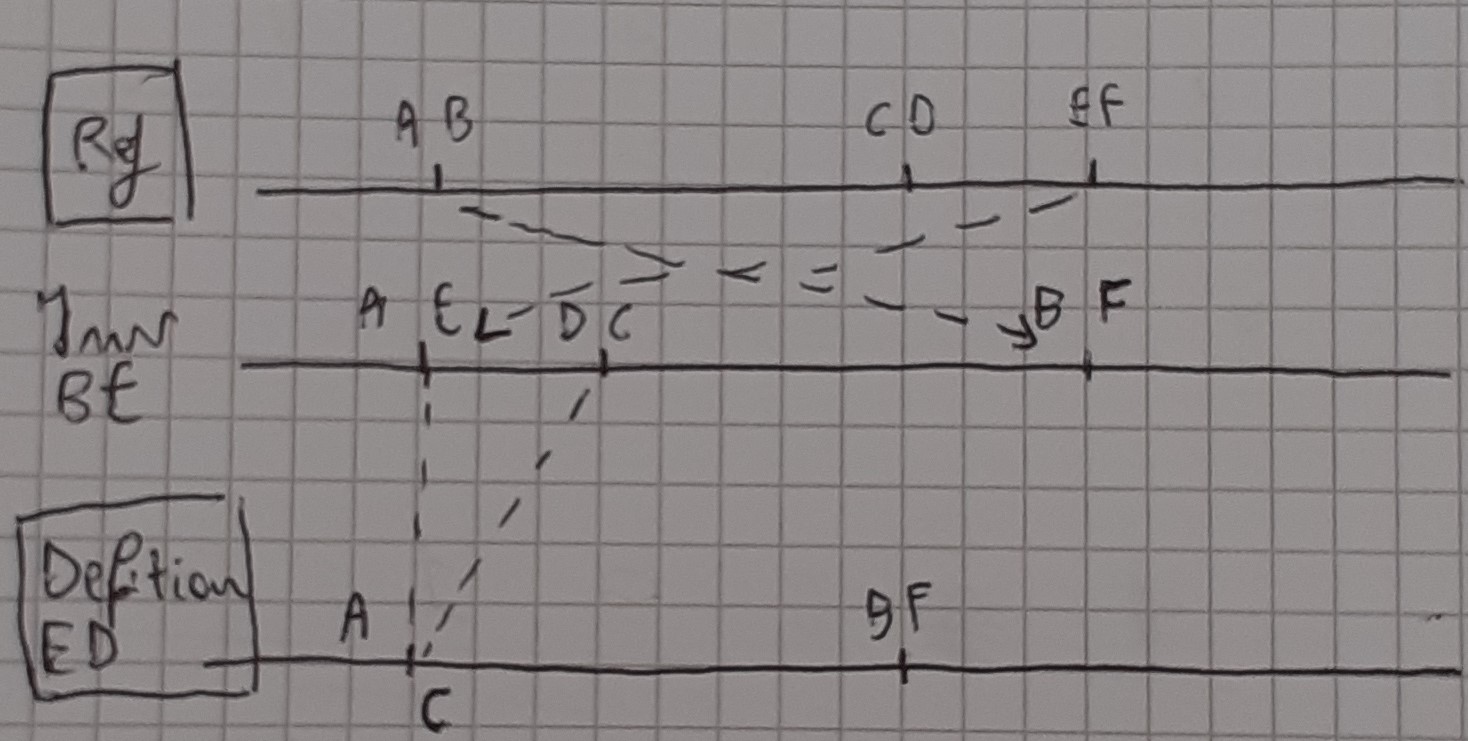 Ref
A B
C D
E F
Inv
BE
A E
D C
B F
Deftion
ED
A
C
B F